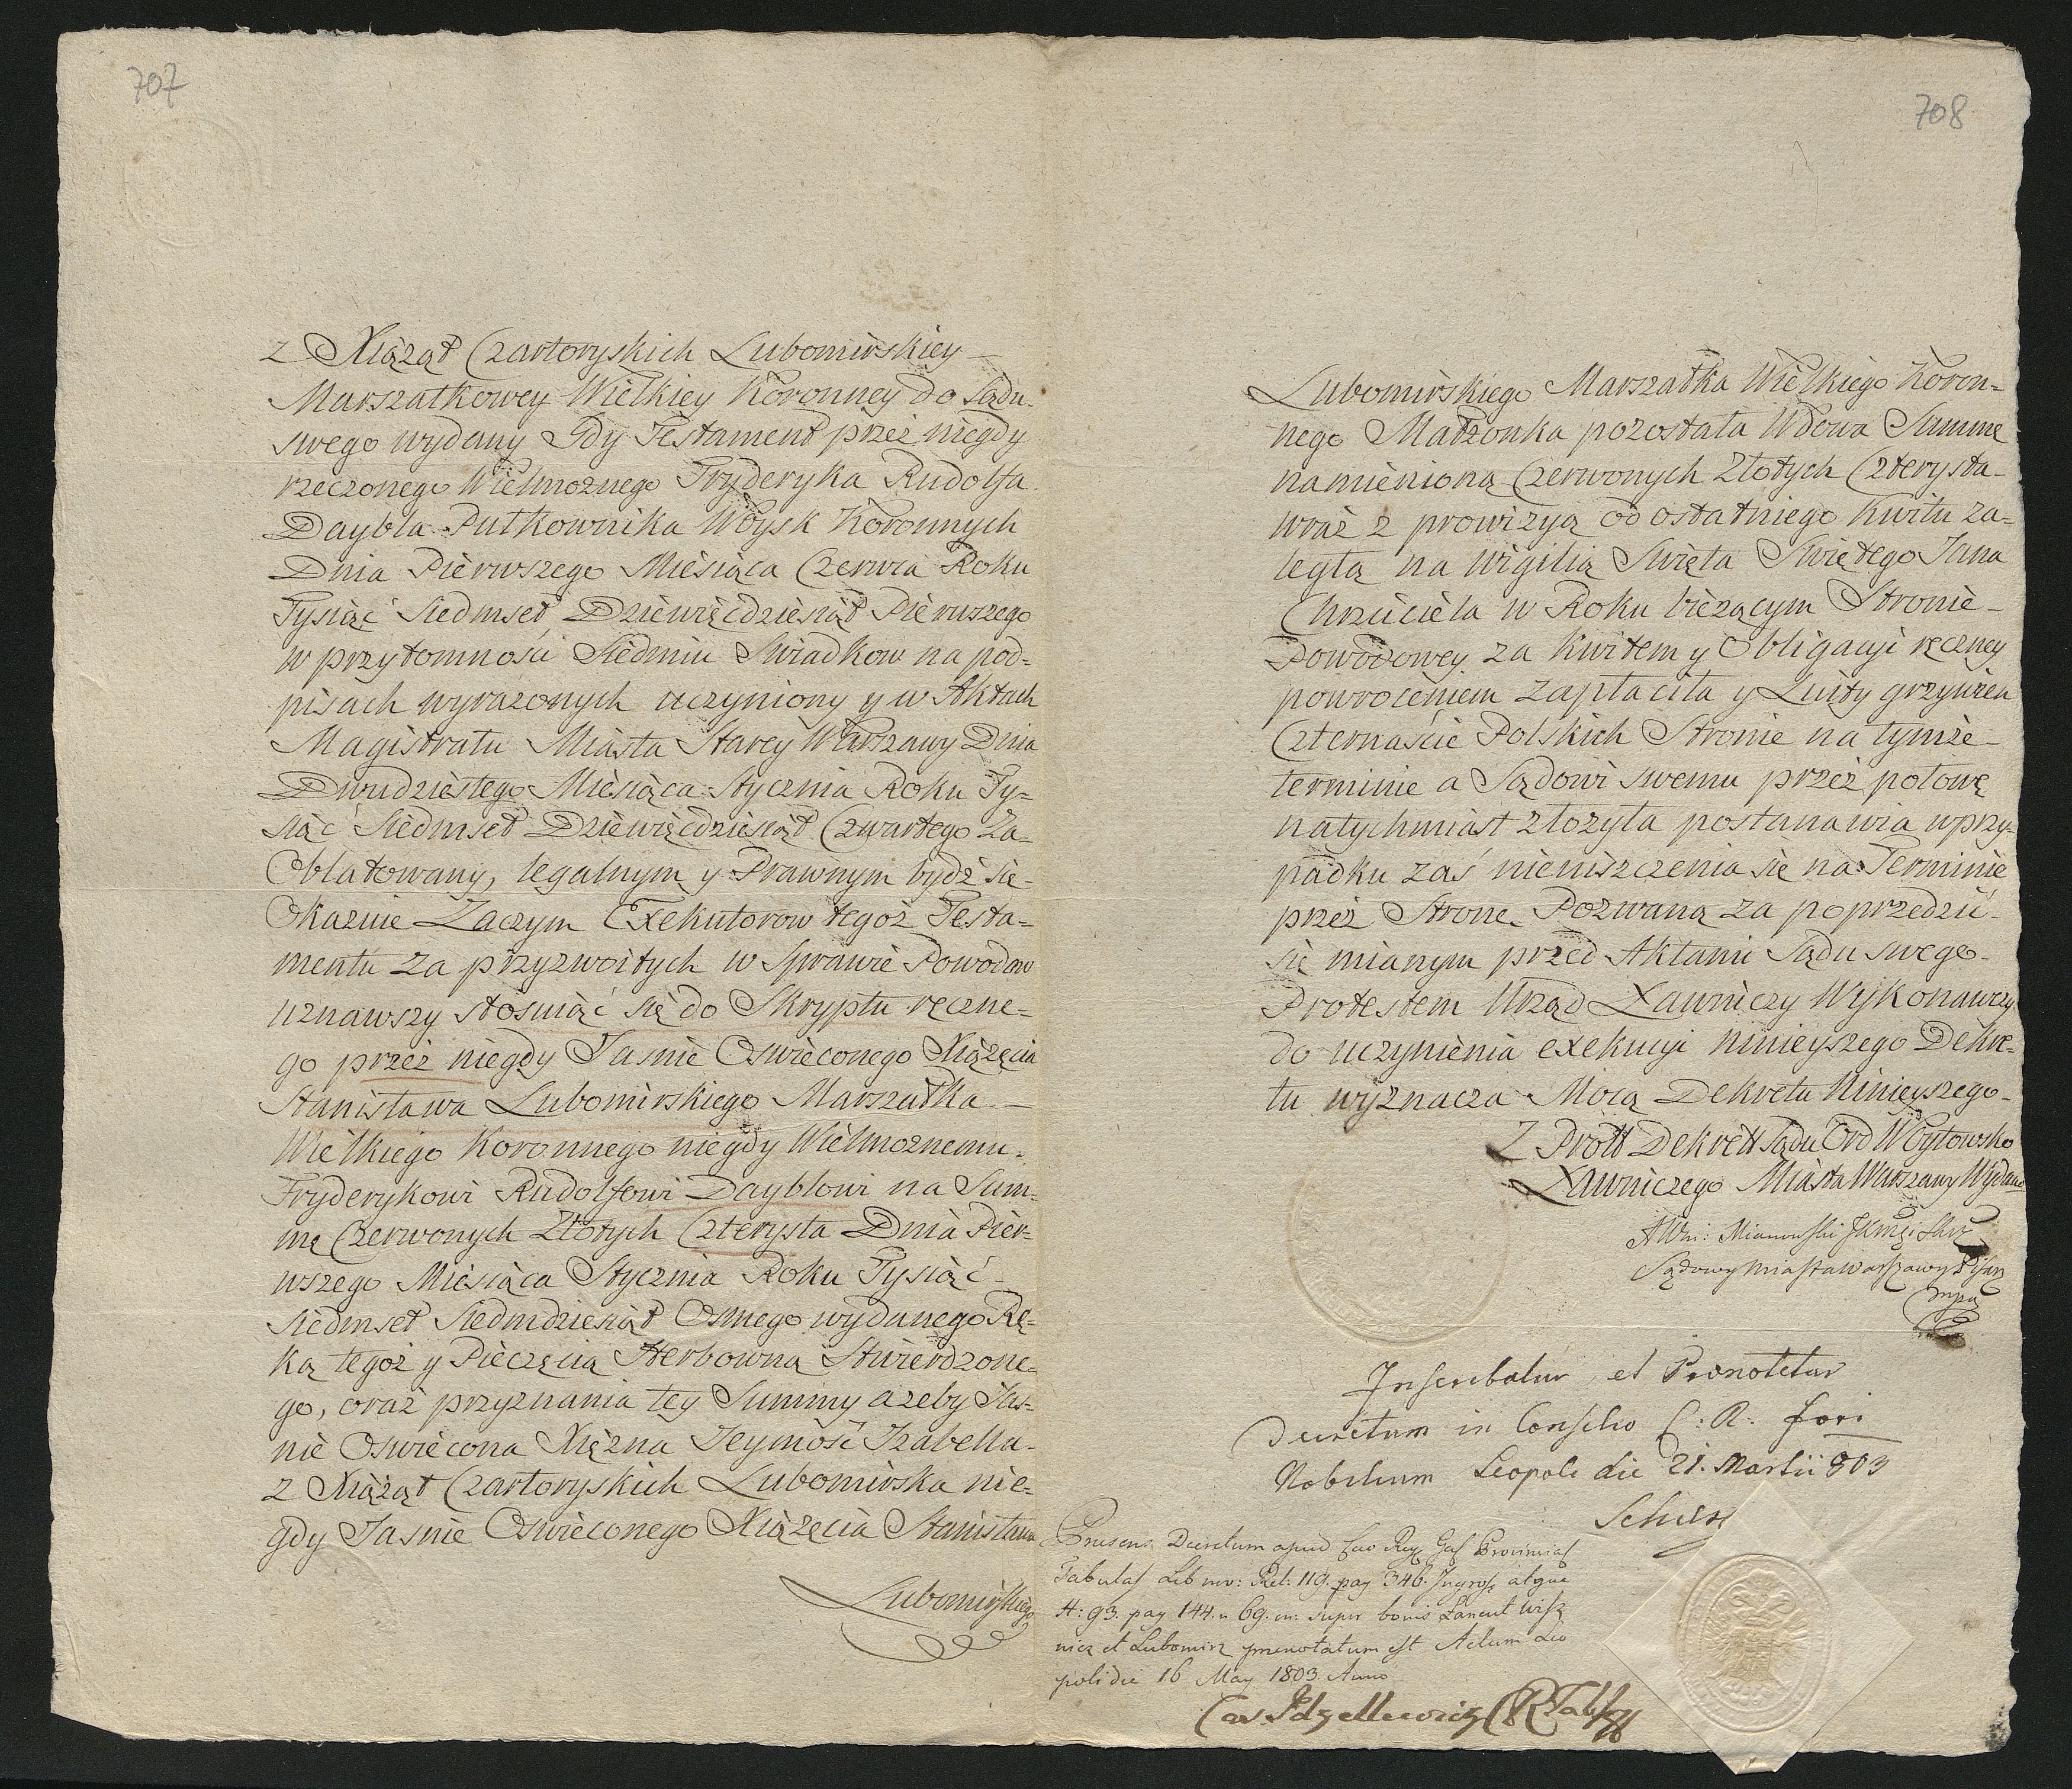 707
z Xiąząt Czartoryskich Lubomirskiey
Marszałkowey Wielkiey Koronney do Sądu
swego wydany Gdy Testament przez niegdy
rzeczonego Wielmoznego Fryderyka Rudolfa
Daybla Pułkownika Woysk Koronnych
Dnia Pierwszego Miesiąca Czerwca Roku
Tysiąć Siedmset Dziewięcdziesiąt Pierwszego
w przytomnosci Siedmiu Swiadkow na pod=
pisach wyrazonych uczyniony y w Aktach
Magistratu Miasta Starey Warszawy Dnia
Dwudziestego Miesiąca Stycznia Roku Ty=
siąć Siedmset Dziewięcdziesiąt Czwartego Za=
Oblatowany, legalnym y Prawnym bydź się
Okazuie Zaczym Exekutorow tegoż Testa=
mentu za przyzwoitych w Sprawie Powodow
uznawszy stosuiąć się do Skryptu ręczne=
go przez niegdy Jasnie Oswieconego Xiązęcia
Stanisława Lubomirskiego Marszałka
Wielkiego Koronnego niegdy Wielmoznemu
Fryderykowi Rudolfowi Dayblowi na Sum=
mę Czerwonych Złotych Czterysta Dnia Pier=
wszego Miesiąca Stycznia Roku Tysiąć
Siedmset Siedmdziesiąt Osmego wydanego Rę=
ką tegoż y Pieczęcią Herbowną Stwierdzone=
go, oraz przyznania tey Summy azeby Jas=
nie Oswiecona Xięzna Jeymość Izabella
z Xiąząt Czartoryskich Lubomirska nie=
gdy Jasnie Oswieconego Xiązęcia Stanisława
Lubomirskiego
708
Lubomirskiego Marszałka Wielkiego Koron=
nego Małzonka pozostała Wdowa Summę
namienioną Czerwonych Złotych Czterysta
wraz z prowizyą od ostatniego Kwitu za=
ległą na wigilią Swięta Swiętego Jana
Chrzciciela w Roku biezącym Stronie
Powodowey za kwitem y Obligacyi ręczney
powroceniem zapłaciła y Luity grzywien
Czternaście Polskich Stronie na tymze
terminie a Sądowi swemu przez połowę
natychmiast złozyła postanawia w przy=
padku zaś nieuiszczenia się na Terminie
przez Stronę Pozwaną za poprzedzić
się mianym przed Aktami Sądu swego
Protestem Urząd Ławniczy Wykonawczy
do uczynienia exekucyi ninieyszego Dekre=
tu wyznacza Mocą Dekretu Ninieyszego
Z Prott Dekrett Sądu Ord Woytowsko
Ławniczego Miasta Warszawy Wydano
Mianowski
Sądowy Miasta Warszawy Pisarz
mpa
Inscribatur, et Prenotetur
Decretum in Consilio C: R: fori
Nobilium Leopoli die 21. Martii 803
Presens Decretum apud Provincial
Tabulas Lib nov: Rel: 119. pag 346. Ingross atque
H: 93. pag 144. n 69. on: super bonis Lancut Wisz
nicz et Lubomirz prenotatum est Actum Leo
poli die 16 May 1803. Anno